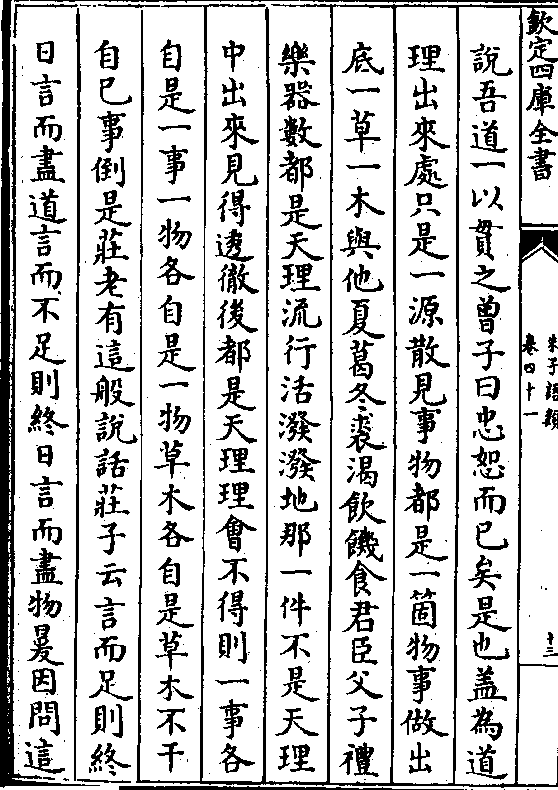 欽定四庫全書
朱子語類
卷四十一
十三
說吾道一以貫之曾子曰忠恕而已矣是也盖為道
理出來處只是一源散見事物都是一箇物事做出
底一草一木與他夏葛冬裘渴飲饑食君臣父子禮
樂器數都是天理流行活潑潑地那一件不是天理
中出來見得透徹後都是天理理會不得則一事各
自是一事一物各自是一物草木各自是草木不干
自已事倒是莊老有這般說話莊子云言而足則終
日言而盡道言而不足則終日言而盡物㬊因問這